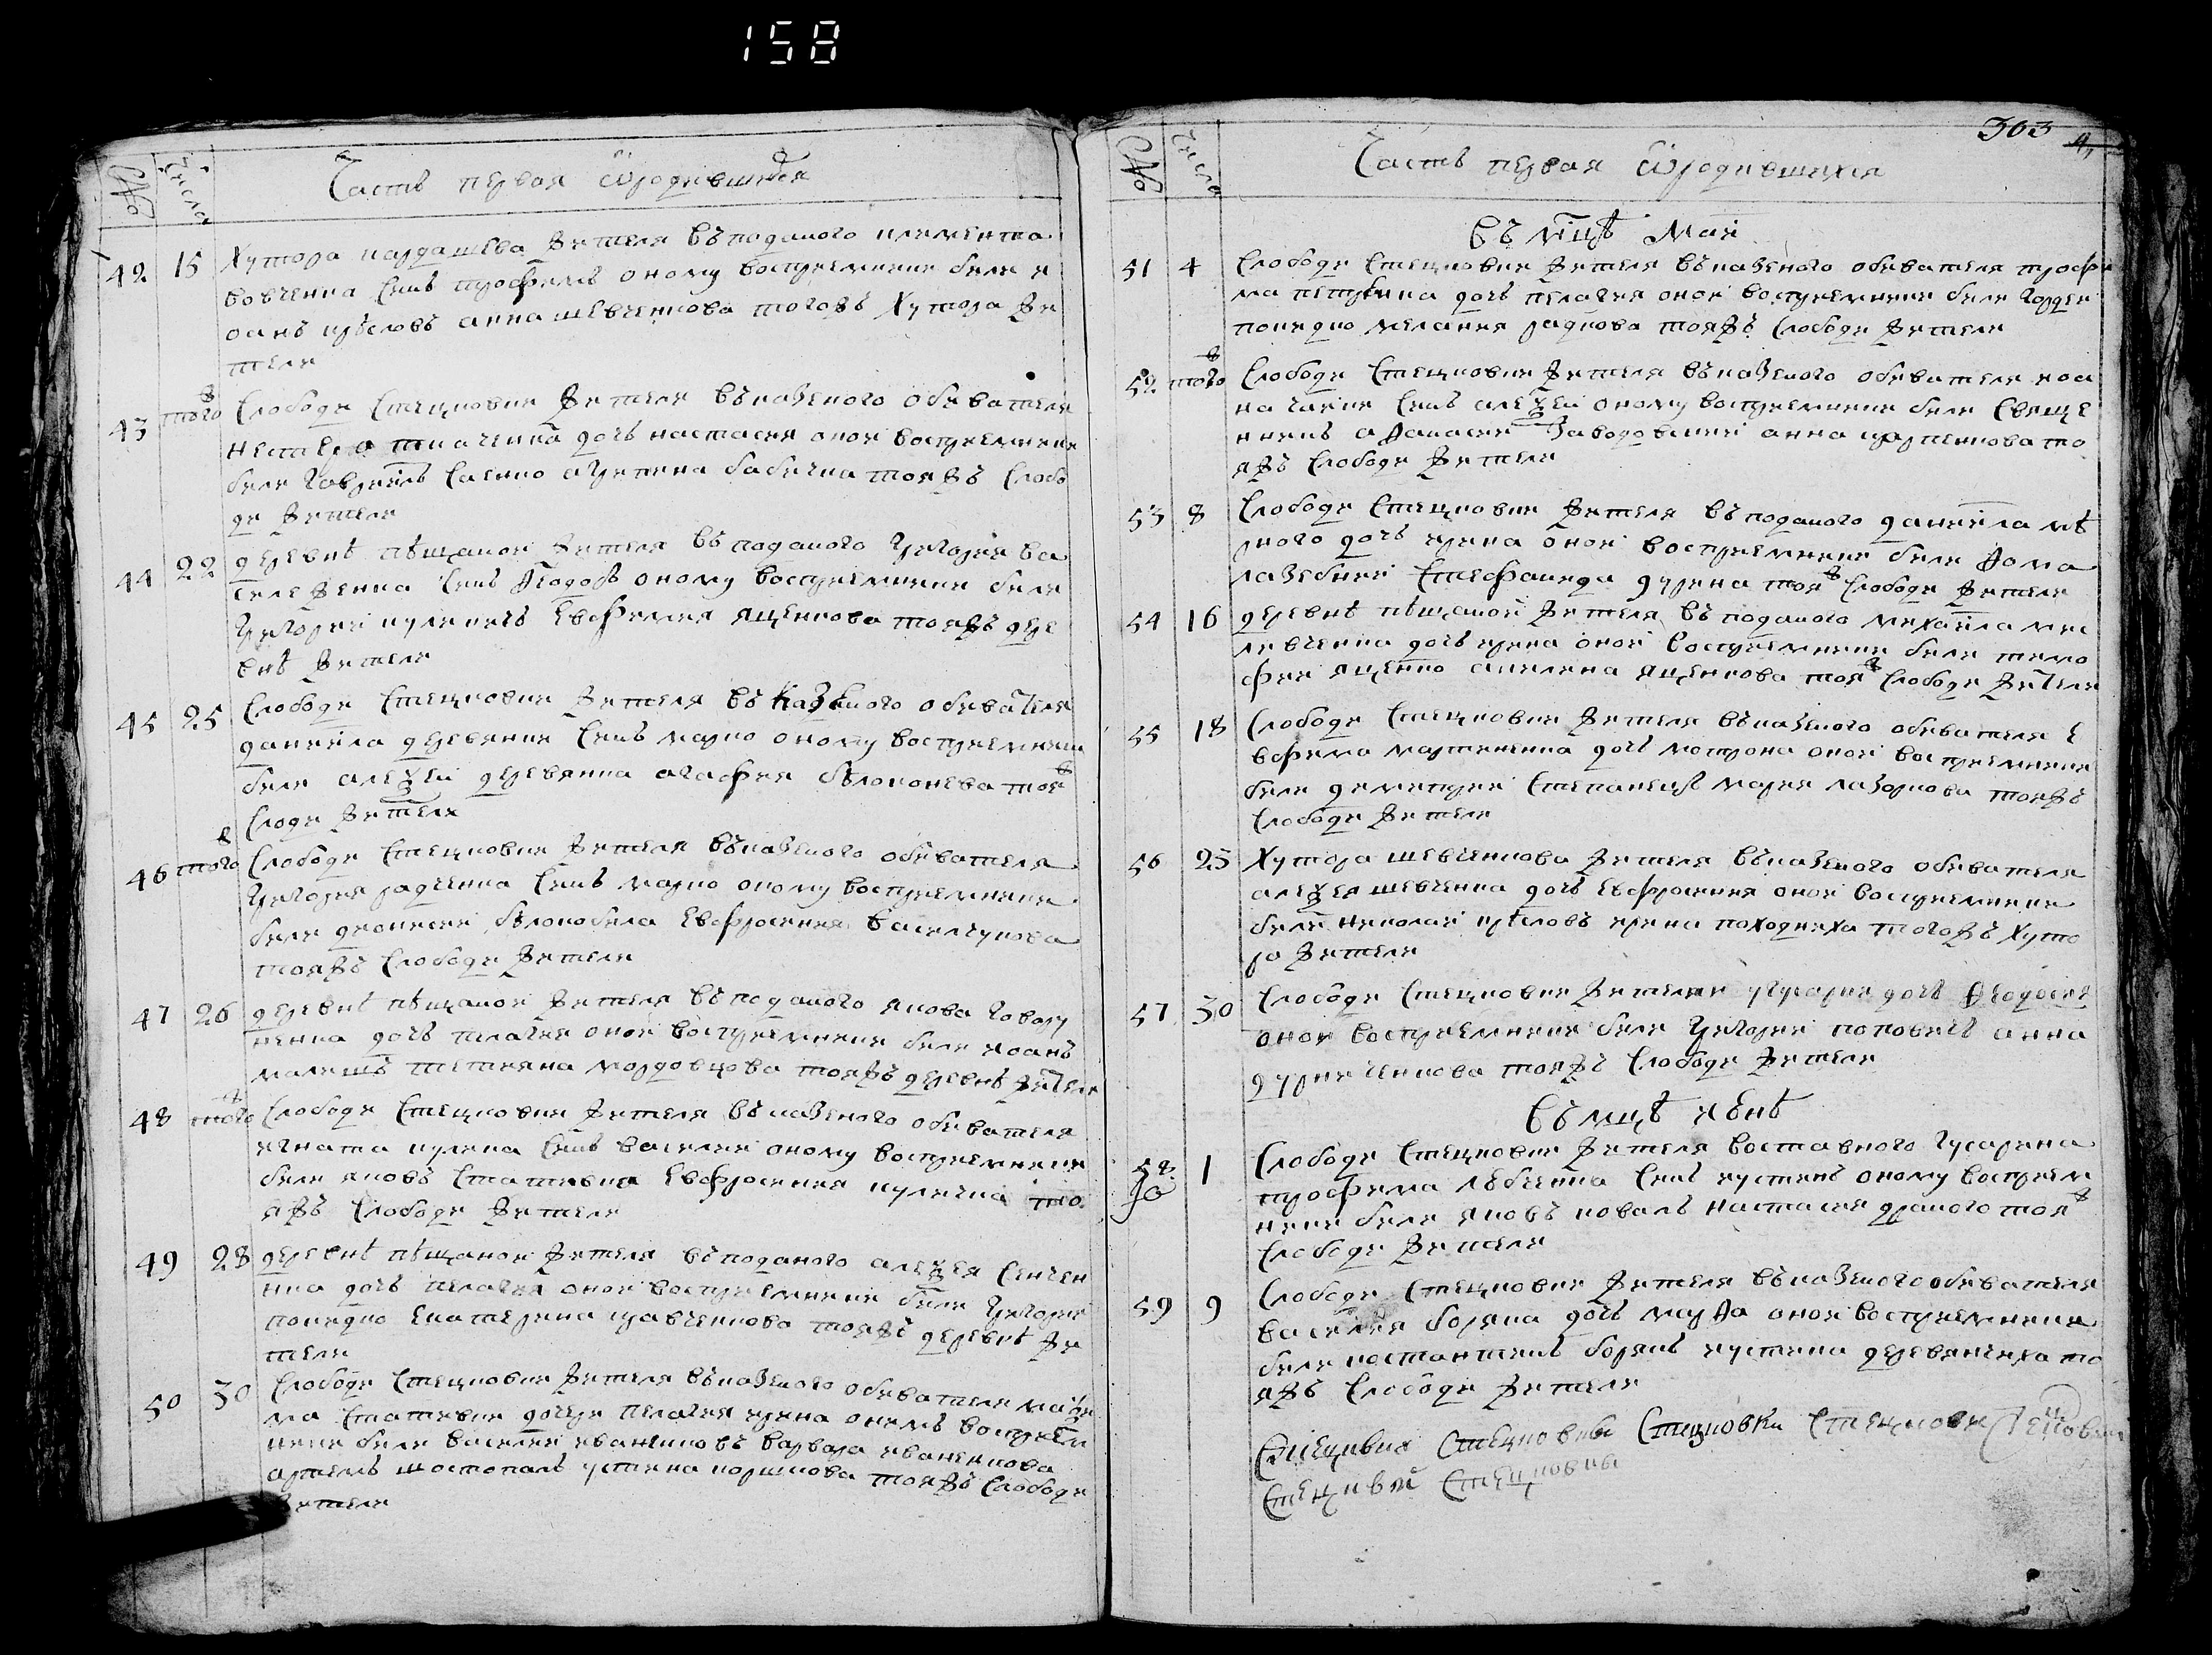 158
303
№ Числа Часть первая ѡ родившихся
42 15 Хутора кардашева жителя въ поданого климентиа
вовченка синъ трофимъ оному восприемники били и
оанъ крѣсловъ анна шевченкова тогожъ Хутора жи
тели
43 тогож Слободи Стецковки жителя въ казеного обивателя
нестера ткаченка дочъ настасия оной восприемники
били гавріилъ саенко агрипина бабичка тояжъ Слобо
ди жители
44 22 деревнѣ пѣщаной жителя въ поданого григория ва
силженка синъ Ѳеодоръ оному восприемники били
григорий куличъ Евфимия ященкова тояжъ дере
внѣ жители
45 25 Слободи Стецковки жителя въ казеного обивателя
даниила деревянки синъ марко оному восприемники
били алеѯей деревянка агафия бѣлоконева тояж
Слоди жители
46 тогож Слободи Стецковки жителя въ казеного обивателя
григория радченка синъ марко оному восприемники
били дионисий бѣлокобила Евфросиния василчукова
тояжъ Слободи жители
47 26 деревнѣ пѣщаной жителя въ поданого якова говору
ненка дочъ пелагия оной восприемники били иоанъ
малишъ татияна мордовцова тояжъ деревнѣ жители
48 тогож Слободи Стецковки жителя въ казеного обивателя
игната кулика синъ василий оному восприемники
били яковъ Статывка Евфросиния куличка то
яжъ Слободи жители
49 28 деревнѣ пѣщаной жителя въ поданого алеѯея Сенчен
нка дочъ пелагия оной восприемники били григорий
понидко Екатерина кравченкова тояжъ деревнѣ жи
тели
50 30 Слободи Стецковки жителя въ казеного обивателя маѯи
ма Статывки дочери пелагия ирина онимъ восприем
ники били василий иваненковъ варвара иваненкова
артемъ шостопалъ устина коршкова тояжъ Слободи
жители
№ Числа Часть первая ѡ родившихся
Въ мцѣ Маи
51 4 Слободи Стецковки жителя въ казеного обивателя трофи
ма петренка дочъ пелагия оной восприемники били гордей
понидко мелания радкова тояжъ Слободи жители
52 тогож Слободи Стецковки жителя въ казеного обивателя иоа
на чайки синъ алеѯей оному восприемники били Свяще
нникъ аѳанасий Заводовский анна карпенкова то
яжъ Слободи жители
53 8 Слободи Стецковки жителя въ поданого даниила мѣ
рного дочъ ирина оной восприемники били Ѳома
лазебний Стефанида дудчна тояж Слободи жители
54 16 деревнѣ пѣщаной жителя въ поданого михаила мис
ливченка дочъ ирина оной восприемники били тимо
фий ященко акилина ященкова тояж Слободи жители
55 18 Слободи Стецковки жителя въ казеного обивателя Е
вфима мартиненка дочъ мотрона оной восприемники
били димитрий Степанецъ мария лазоркова тояжъ
Слободи жители
56 25 Хутора шевченкова жителя въ казеного обивателя
алеѯея шевченка дочъ Евфросиния оной восприемники
били николай крѣсловъ ирина походниха тогожъ Хуто
ра жители
57 30 Слободи Стецковки жителки дочъ Ѳеодосия
оной восприемники били григорий поповичъ анна
дудниченкова тояжъ Слободи жители
Въ мцѣ июнѣ
58 1 Слободи Стецковки жителя воставного гусарина
трофима лѣбченка синъ иустинъ оному восприем
ники били яковъ ковалъ настасия драного тояж
Слободи жители
59 9 Слободи Стецковки жителя въ казеного обивателя
василия борика дочъ марѳа оной восприемники
били костантинъ борикъ иустина деревянчиха то
яжъ Слободи жители
Стецковки Стецковки Стецковки Стецковки
Стецковки Стецковки